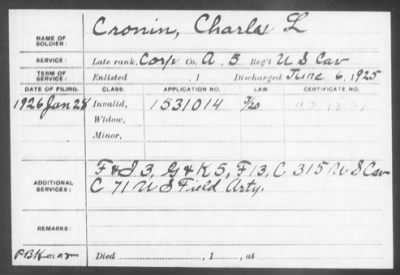 NAME OF SOLDIER: Cronin, Charles L
SERVICE: Late rank, Corp Co. A. 5 Reg't U S Cav
TERM OF SERVICE: Enlisted , 1 Discharged June 6, 1925
DATE OF FILING. CLASS. APPLICATION NO. LAW CERTIFICATE NO.
1926 Jan 28 Invalid, 1531014
Widow,
Minor,
F & I 3, G & K 5, F 13, C 315 U S Cav
ADDITIONAL SERVICES: C 71 U S Field Arty.
REMARKS:
Died , 1 , at